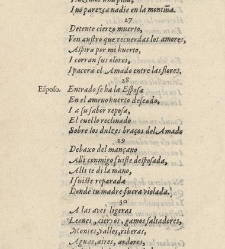 I no parezca nadie en la montiña.
27
Detente cierzo muerto,
Ven austro que recuerdas los amores,
Aspira por mi huerto,
I corran sus olores,
I pacerá el Amado entre las flores.
28
Espoſo. Entrado se ha la Esposa
En el ameno huerto deseado,
I a su sabor reposa,
El cuello reclinado
Sobre los dulçes braços del Amado
29
Debaxo del mançano
Alli conmigo fuiste desposada,
Alli te di la mano,
I fuiste reparada
Donde tu madre fuera violada.
30
A las aves ligeras
Leones, ciervos, gamos saltadores,
Montes, valles, riberas,
Aguas, aires, ardores,